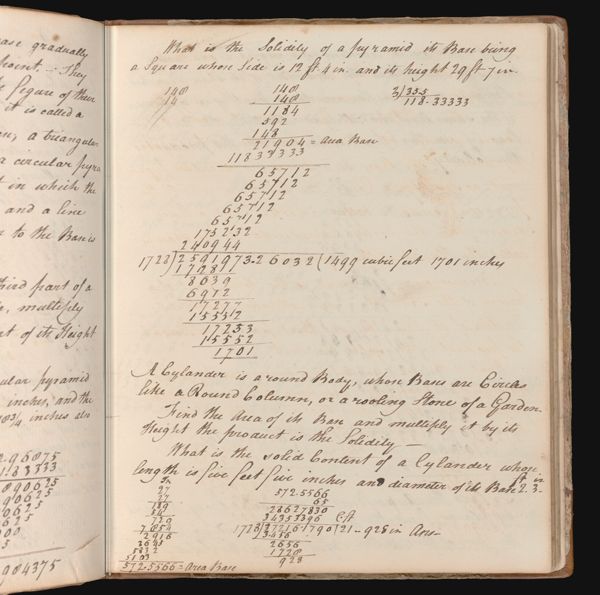 ase gradually
point. They
Figure of their
it is called a
a triangular
a circular pyra
t in which the
and a line
to the Base is
Third part of a
multiply
t of its Height
ular pyramid
inches, and the
inches also
296875
1183333
890625
90625
0625
625
984375
What is the Solidity of a pyramid its Base being
a Square whose Side is 12 ft 4 in. and its height 29 ft 7 in.
148 148 3)355
14 148 118.33333
1184
592
148
21904 = Area Base
11833333
65712
65712
65712
65712
65712
175232
240944
1728)2591973.26032(1499 cubic feet 1701 inches
172811
8639
6912
17277
15552
17253
15552
1701
A Cylander is a round Body, whose Bases are Circles
like a Round Column, or a rooling Stone of a Garden.
Find the Area of its Base and multiply it by its
Height the product is the Solidity —
What is the solid Content of a Cylander whose
length is five feet five inches and diameter of its Base 2. 3.
ft in
in
27
27
189
54
729
7854
2916
3645
5832
5103
572.5566 = Area Base
572.5566
65
28627830
34353396 C ft
1728)37216.1790(21 - 928 in Ans-
3456
2656
1728
928